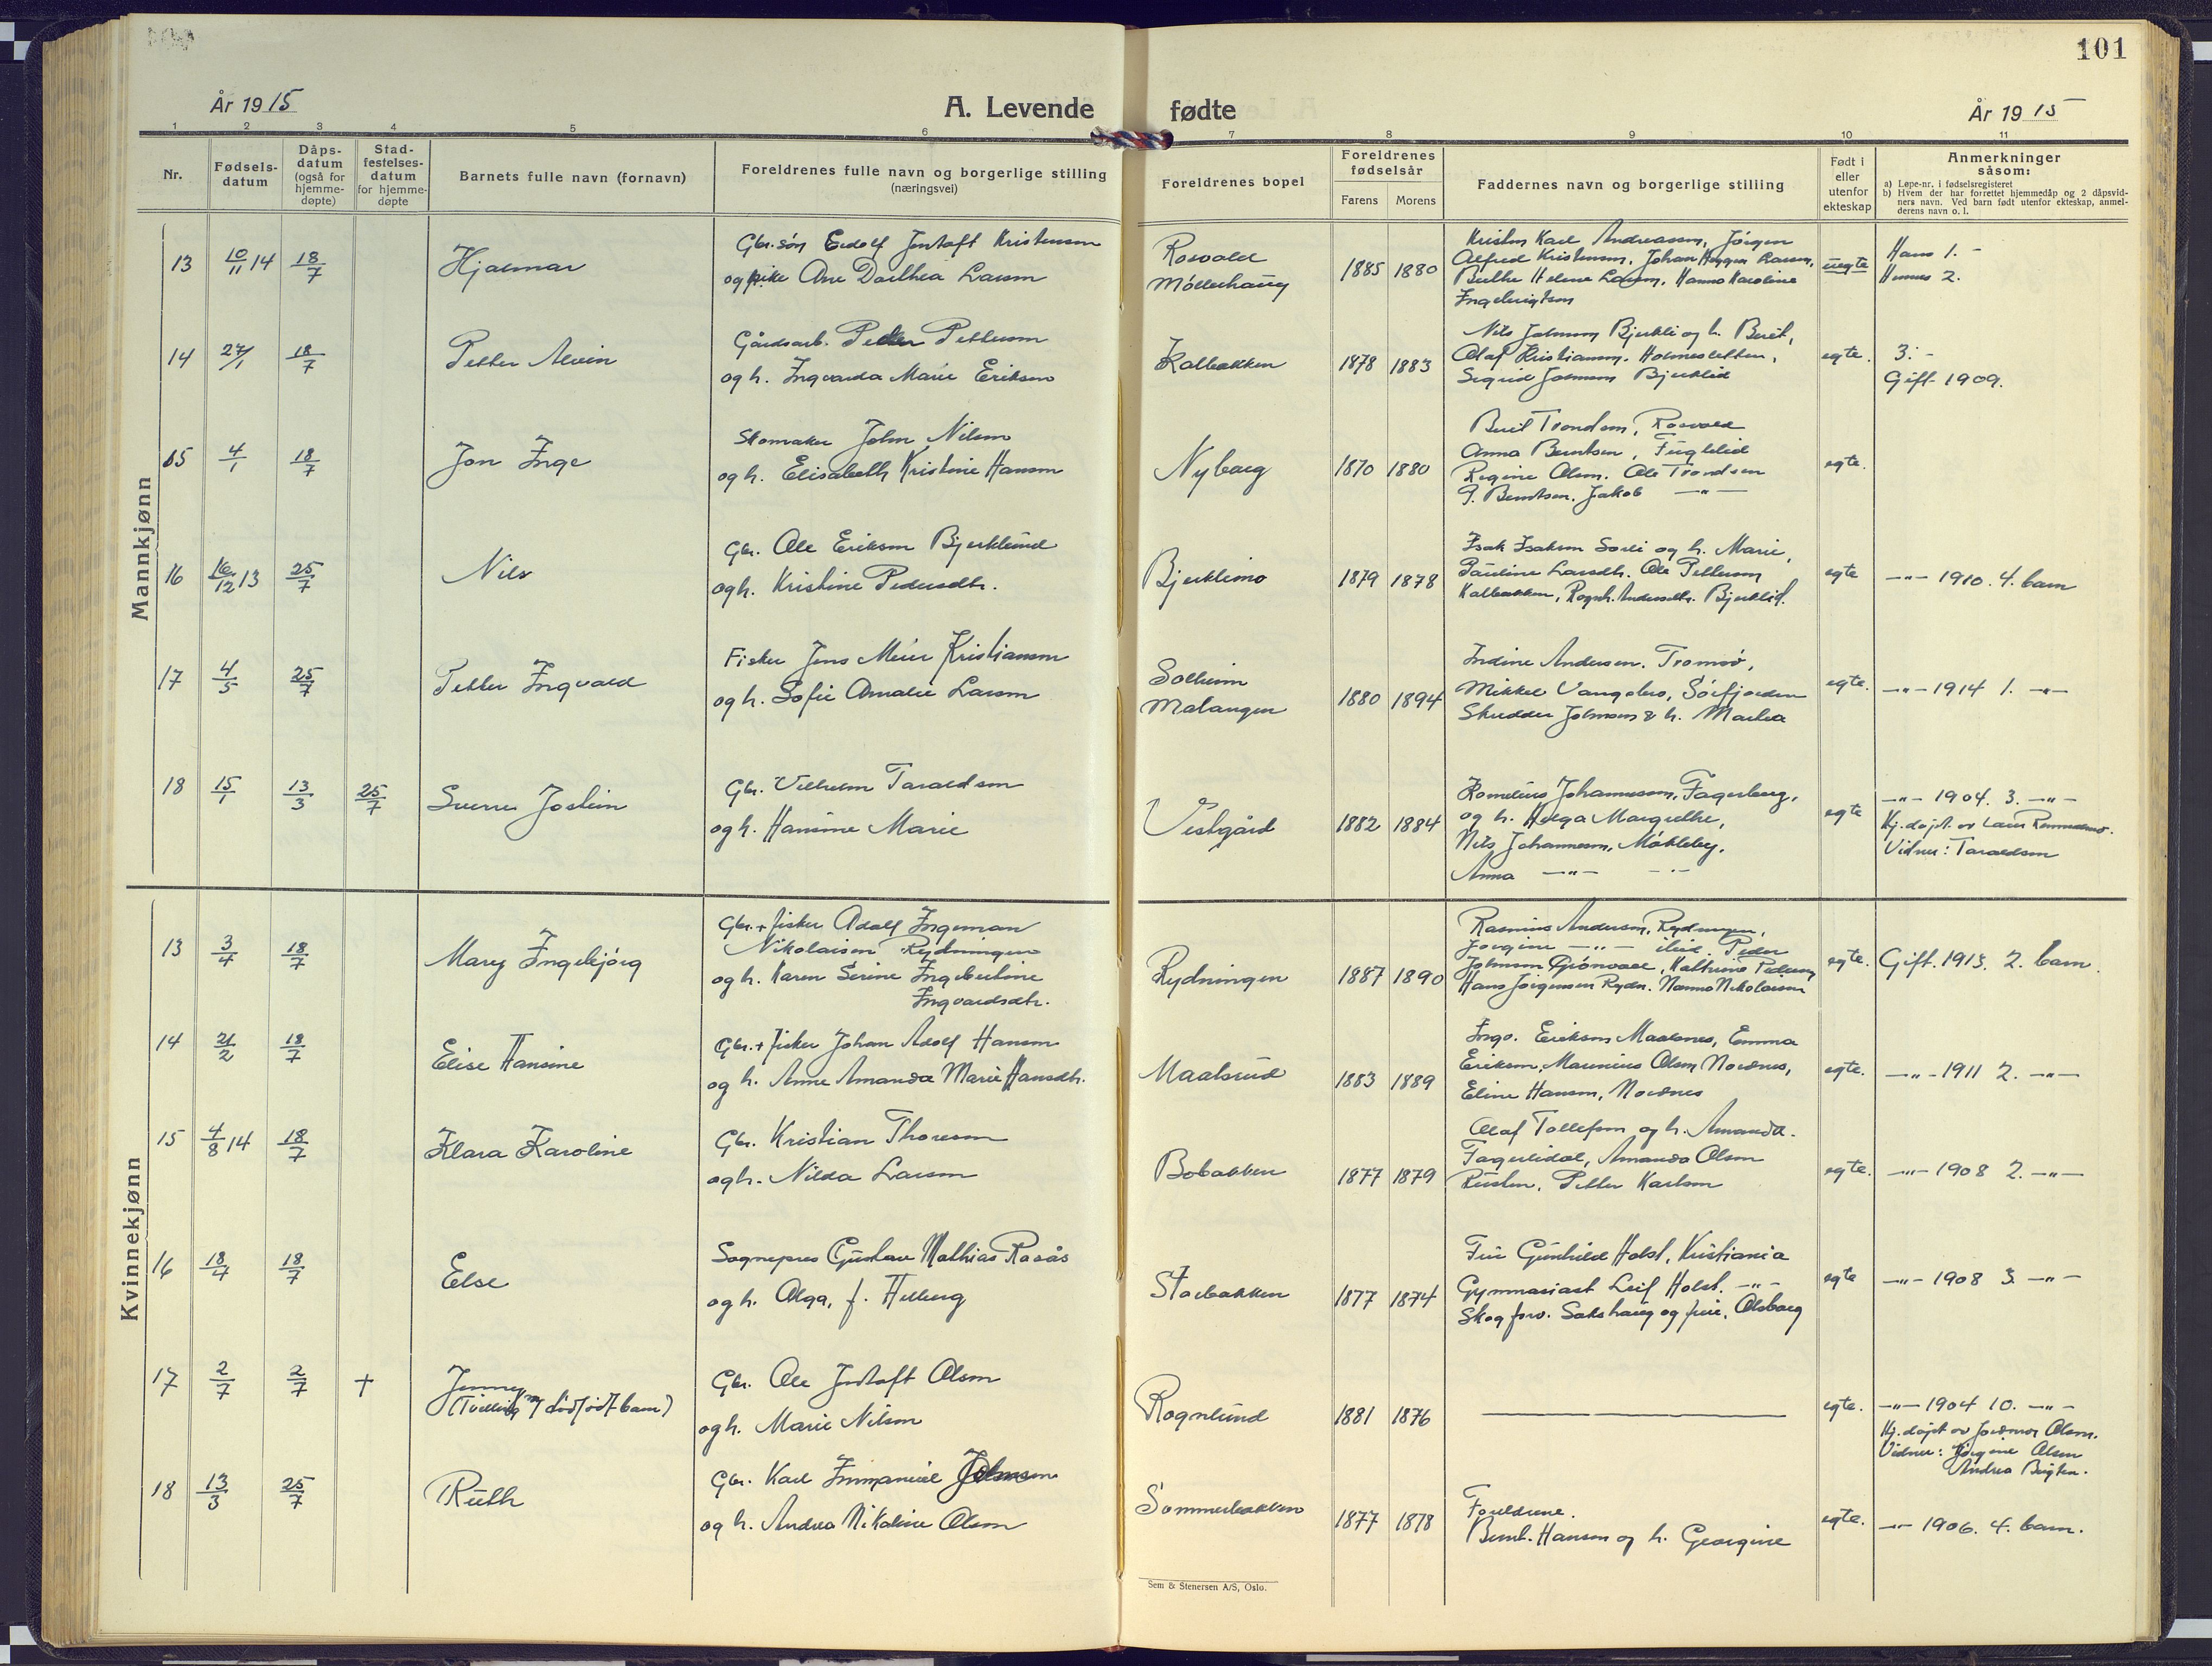 101
År 1915
A. Levende fødte
År 1915
1 2 3 4 5 6 7 8 9 10 11
Nr.
Fødsels-
datum
Dåps-
datum
(også for
hjemme-
døpte)
Stad-
festelses-
datum
for hjemme-
døpte
Barnets fulle navn (fornavn)
Foreldrenes fulle navn og borgerlige stilling
(næringsvei)
Foreldrenes bopel
Foreldrenes
fødselsår
Farens Morens
Faddernes navn og borgerlige stilling
Født i
eller
utenfor
ekteskap
Anmerkninger
såsom:
a) Løpe-nr. i fødselsregisteret
b) Hvem der har forrettet hjemmedåp og 2 dåpsvid-
ners navn. Ved barn født utenfor ekteskap, anmel-
derens navn o. l.
Mannkjønn
13 10/11 14 18/7
Hjalmar
Gbr.søn Jentoft Kristensen
og pike Ane Dorthea Larsen
Rosvold
Møllerhaug
1885 1880
Kristen Karl Andreassen, Jörgen
Alfred Kristensen, Johan Larsen,
Helene Larsen, Hanna Karoline
Ingebrigtsen
uegte
Hans 1. -
Hennes 2.
14 27/1 18/7
Petter Alvin
Gårdsarb. Peder Pettersen
og h. Ingvarda Marie Eriksen
Kalbakken
1878 1883
Nils Johnsen Bjerkli og h. Berit,
Olaf Kristiansen, Holmesletten,
Sigrid Johnsen Bjerklid
egte.
3. -
Gift 1909.
15 4/1 18/7
Jon Inge
Skomaker John Nilsen
og h. Elisabeth Kristine Hansen
Nyborg
1870 1880
Berit Trondsen, Rosvold
Anna Berntsen, Fuglelid
Regine Olsen. Ole Trondsen
P. Berntsen. Jakob —"—
egte.
16 16/12 13 25/7
Nils
Gbr. Ole Eriksen Bjerklund
og h. Kristine Pedersdtr.
Bjerklimo
1879 1878
Isak Isaksen Sørli og h. Marie,
Pauline Larsdtr. Ole Pettersen
Kalbakken, Ragnh. Andersdtr. Bjerklid.
egte
—"— 1910. 4. barn
17 4/5 25/7
Petter Ingvald
Fisker Jens Meier Kristiansen
og h. Sofie Amalie Larsen
Solheim
Malangen
1880 1894
Indine Andersen. Tromsø,
Mikkel, Sörfjorden
Johnsen & h. Marlea
egte.
—"— 1914 1. —"—
18 15/1 13/3 25/7
Sverre Jostein
Gbr. Vilhelm Taraldsen
og h. Hansine Marie
Vestgård
1882 1884
Kornelius Johannessen, Fagerberg,
og h. Helga Margrethe,
Nils Johannessen, Møkleby.
Anna —"— —"—
egte
—"— 1904. 3. —"—
Hj.døpt av Lars
Vidner: Taraldsen
Kvinnekjønn
13 3/4 18/7
Mary Ingebjörg
Gbr. + fisker Adolf Ingeman
Nikolaisen Rydningen
og h. Karen Serine Ingebertine
Ingvardsdtr.
Rydningen
1887 1890
Rasmus Andersen, Rydningen,
Jorgine —"— ibid. Peder
Johnsen Grönvoll, Kathrine Pedersen
Hans Jörgensen Rydn. Nanna Nikolaisen
egte.
Gift. 1913. 2. barn.
14 21/2 18/7
Elise Hansine
Gbr. + fisker Johan Adolf Hansen
og h. Anne Amanda Marie Hansdtr.
Maalsund
1883 1889
Ingv. Eriksen Maalsnes, Emma
Eriksen, Marinius Olsen Nordnes,
Eline Hansen, Nordnes
egte.
—"— 1911 2. —"—
15 4/8 14 18/7
Klara Karoline
Gbr. Kristian Thoresen
og h. Nilda Larsen
Bobakken
1877 1879
Olaf Tollefsen og h. Amanda.
Fagerlidal, Amanda Olsen
Rusten, Petter Karlsen
egte.
—"— 1908 2. —"—
16 18/4 18/7
Else
Sognepres Gustav Mathias Raaås
og h. Olga, f. Helberg
Storbakken
1877 1874
Fru Gunhild Holst, Kristiania
Gymnasiast Leif Holst. —"—
Skogforv. Sakshaug og frue, Olsborg
egte
—"— 1908 3. —"—
17 2/7 2/7 †
Jenny
(Tvilling m/ dødfødt barn)
Gbr. Ole Jentoft Olsen
og h. Marie Nilsen
Rognlund
1881 1876
egte.
—"— 1904 10. —"—
Hj.døpt av jordmor Olsen.
Vidner: Jørgine Olsen
Andrea
18 13/3 25/7
Ruth
Gbr. Karl Immanuel Johnsen
og h. Andrea Nikoline Olsen
Sommerbakken
1877 1878
Foreldrene.
Bernt Hansen og h. Georgine
egte.
—"— 1906. 4. barn.
Sem & Stenersen A/S, Oslo.